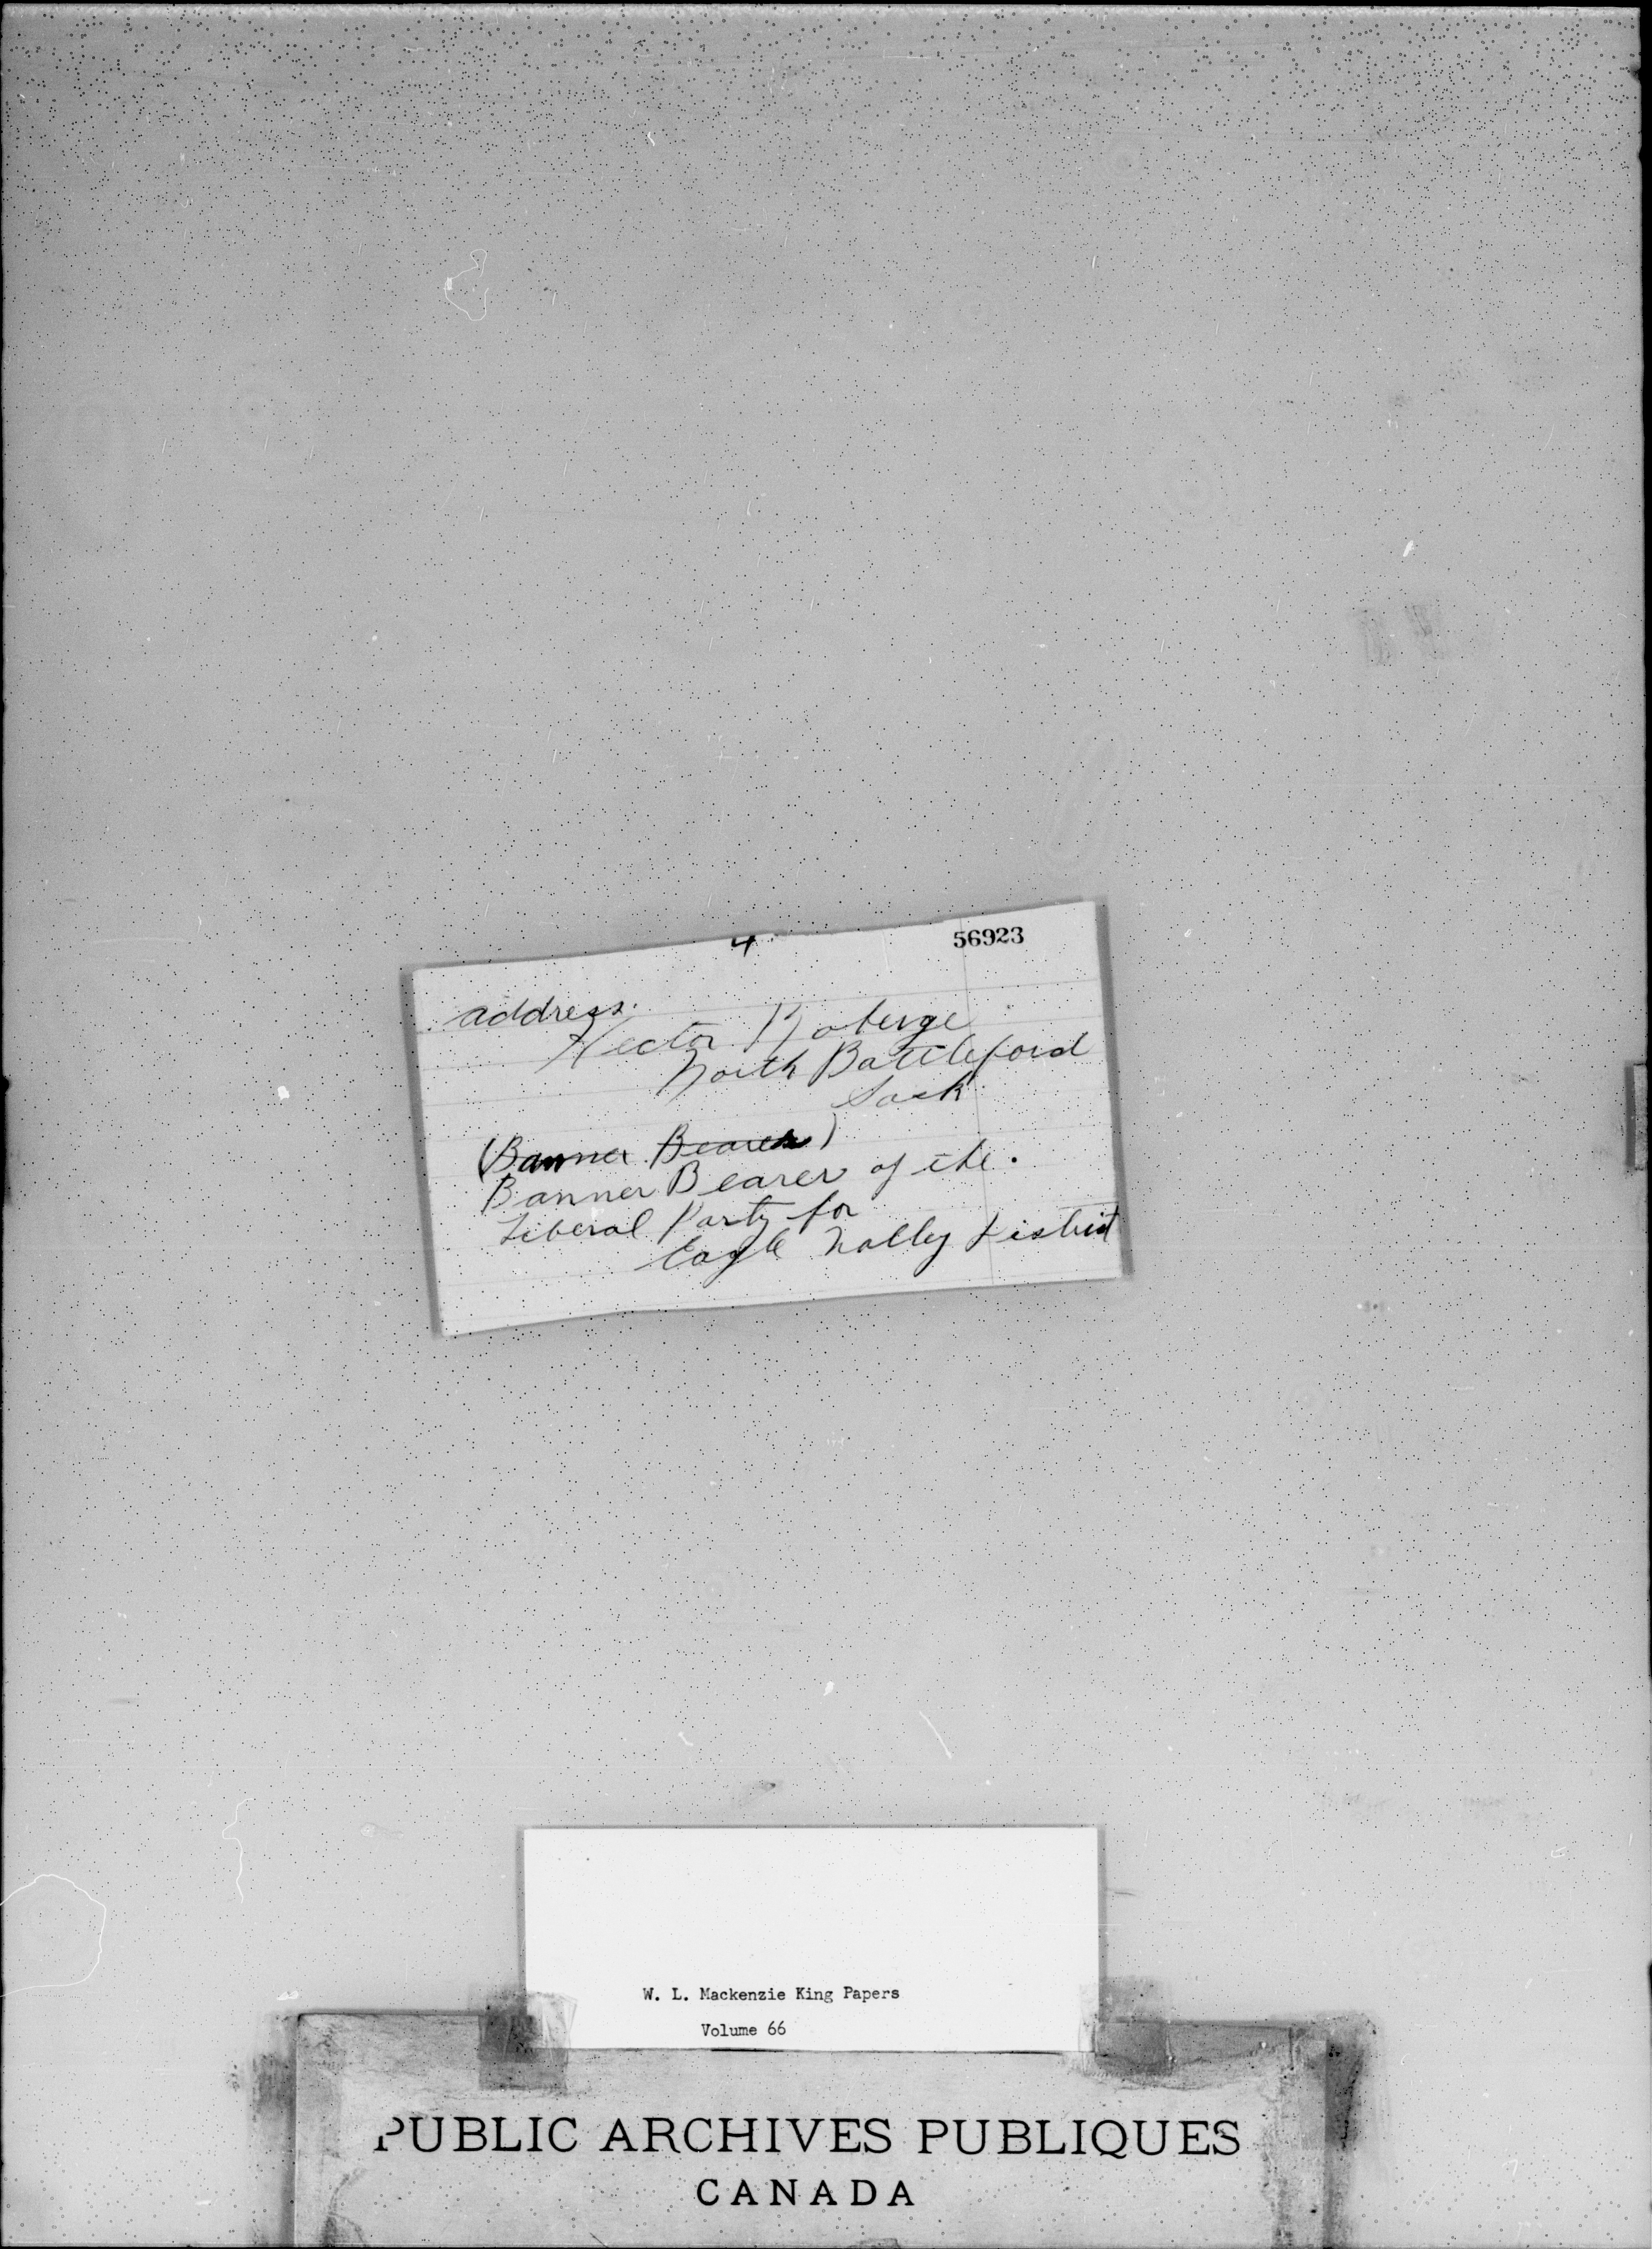 4
56923
address.
Hector Roberge
North Battleford
Sask
(Banner Bearer)
Banner Bearer of the.
Liberal Party for
Eagle Valley District
W. L. Mackenzie King Papers
Volume 66
PUBLIC ARCHIVES PUBLIQUES
CANADA